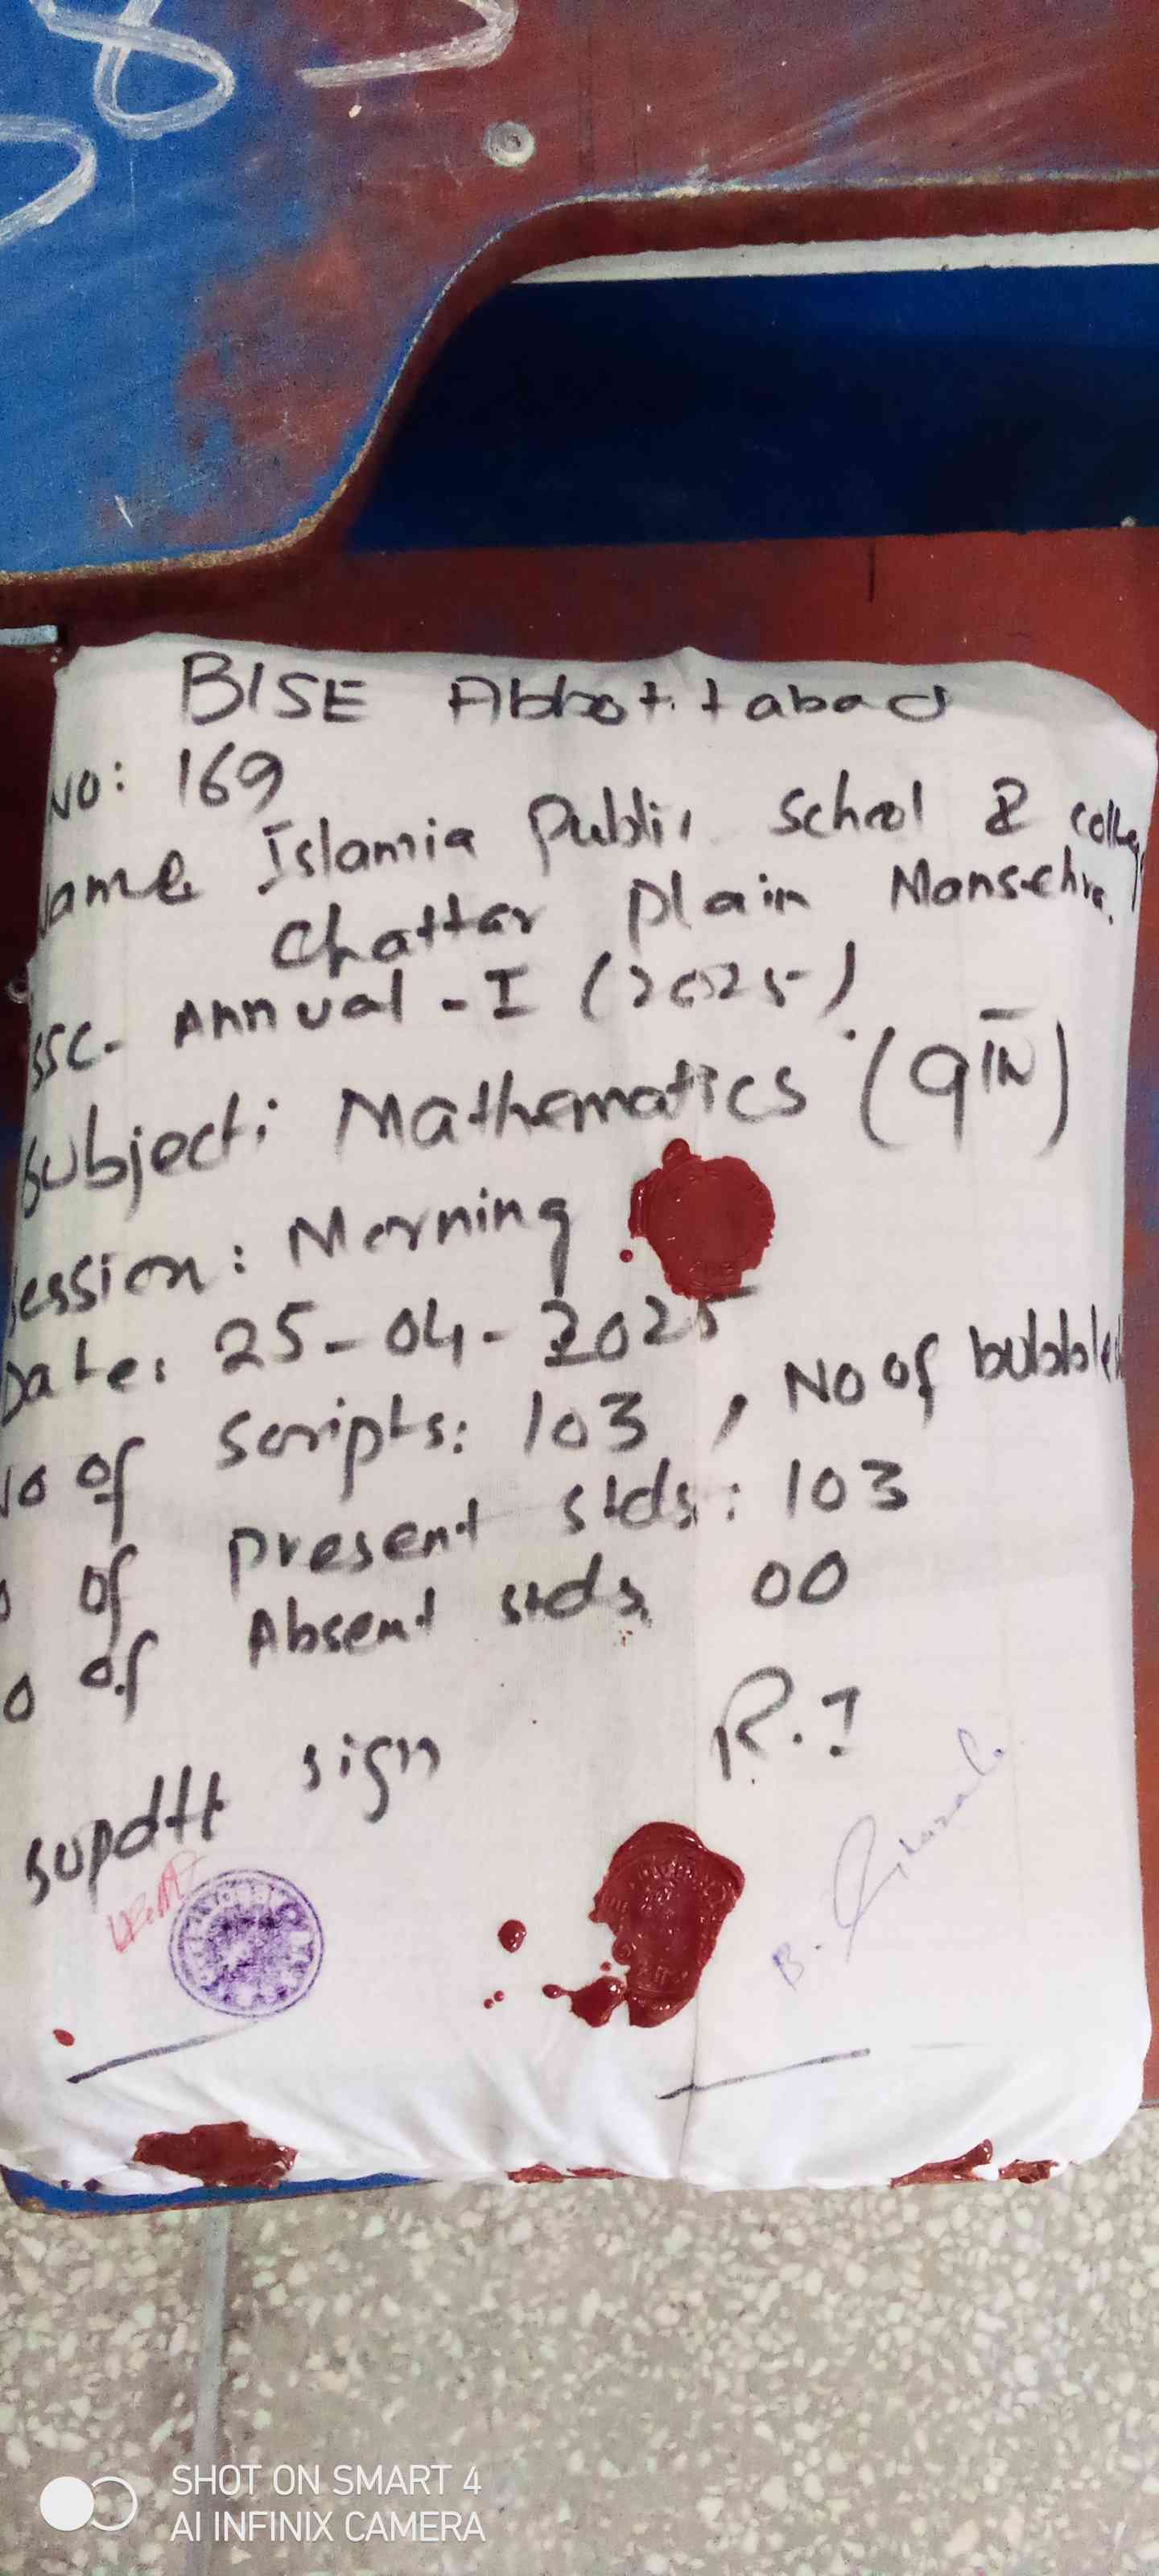 BISE Abbottabad
No: 169
Name Islamia Public School & college
Chattar plain Mansehra.
SSC- Annual - I (2025).
Subject: Mathematics (9th)
Session: Morning
Date: 25-04-2025
No of scripts: 103, No of bubble
o of present stds: 103
o of Absent stds 00
supdtt sign R.I
B.
SHOT ON SMART 4
AI INFINIX CAMERA